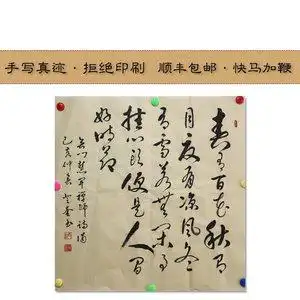 手写真迹·拒绝印刷 顺丰包邮·快马加鞭
春有百花秋有
月夏有凉风冬
有雪若无闲事
挂心头便是人间
好時节
无门慧开禅师诗偈
己亥仲春 书